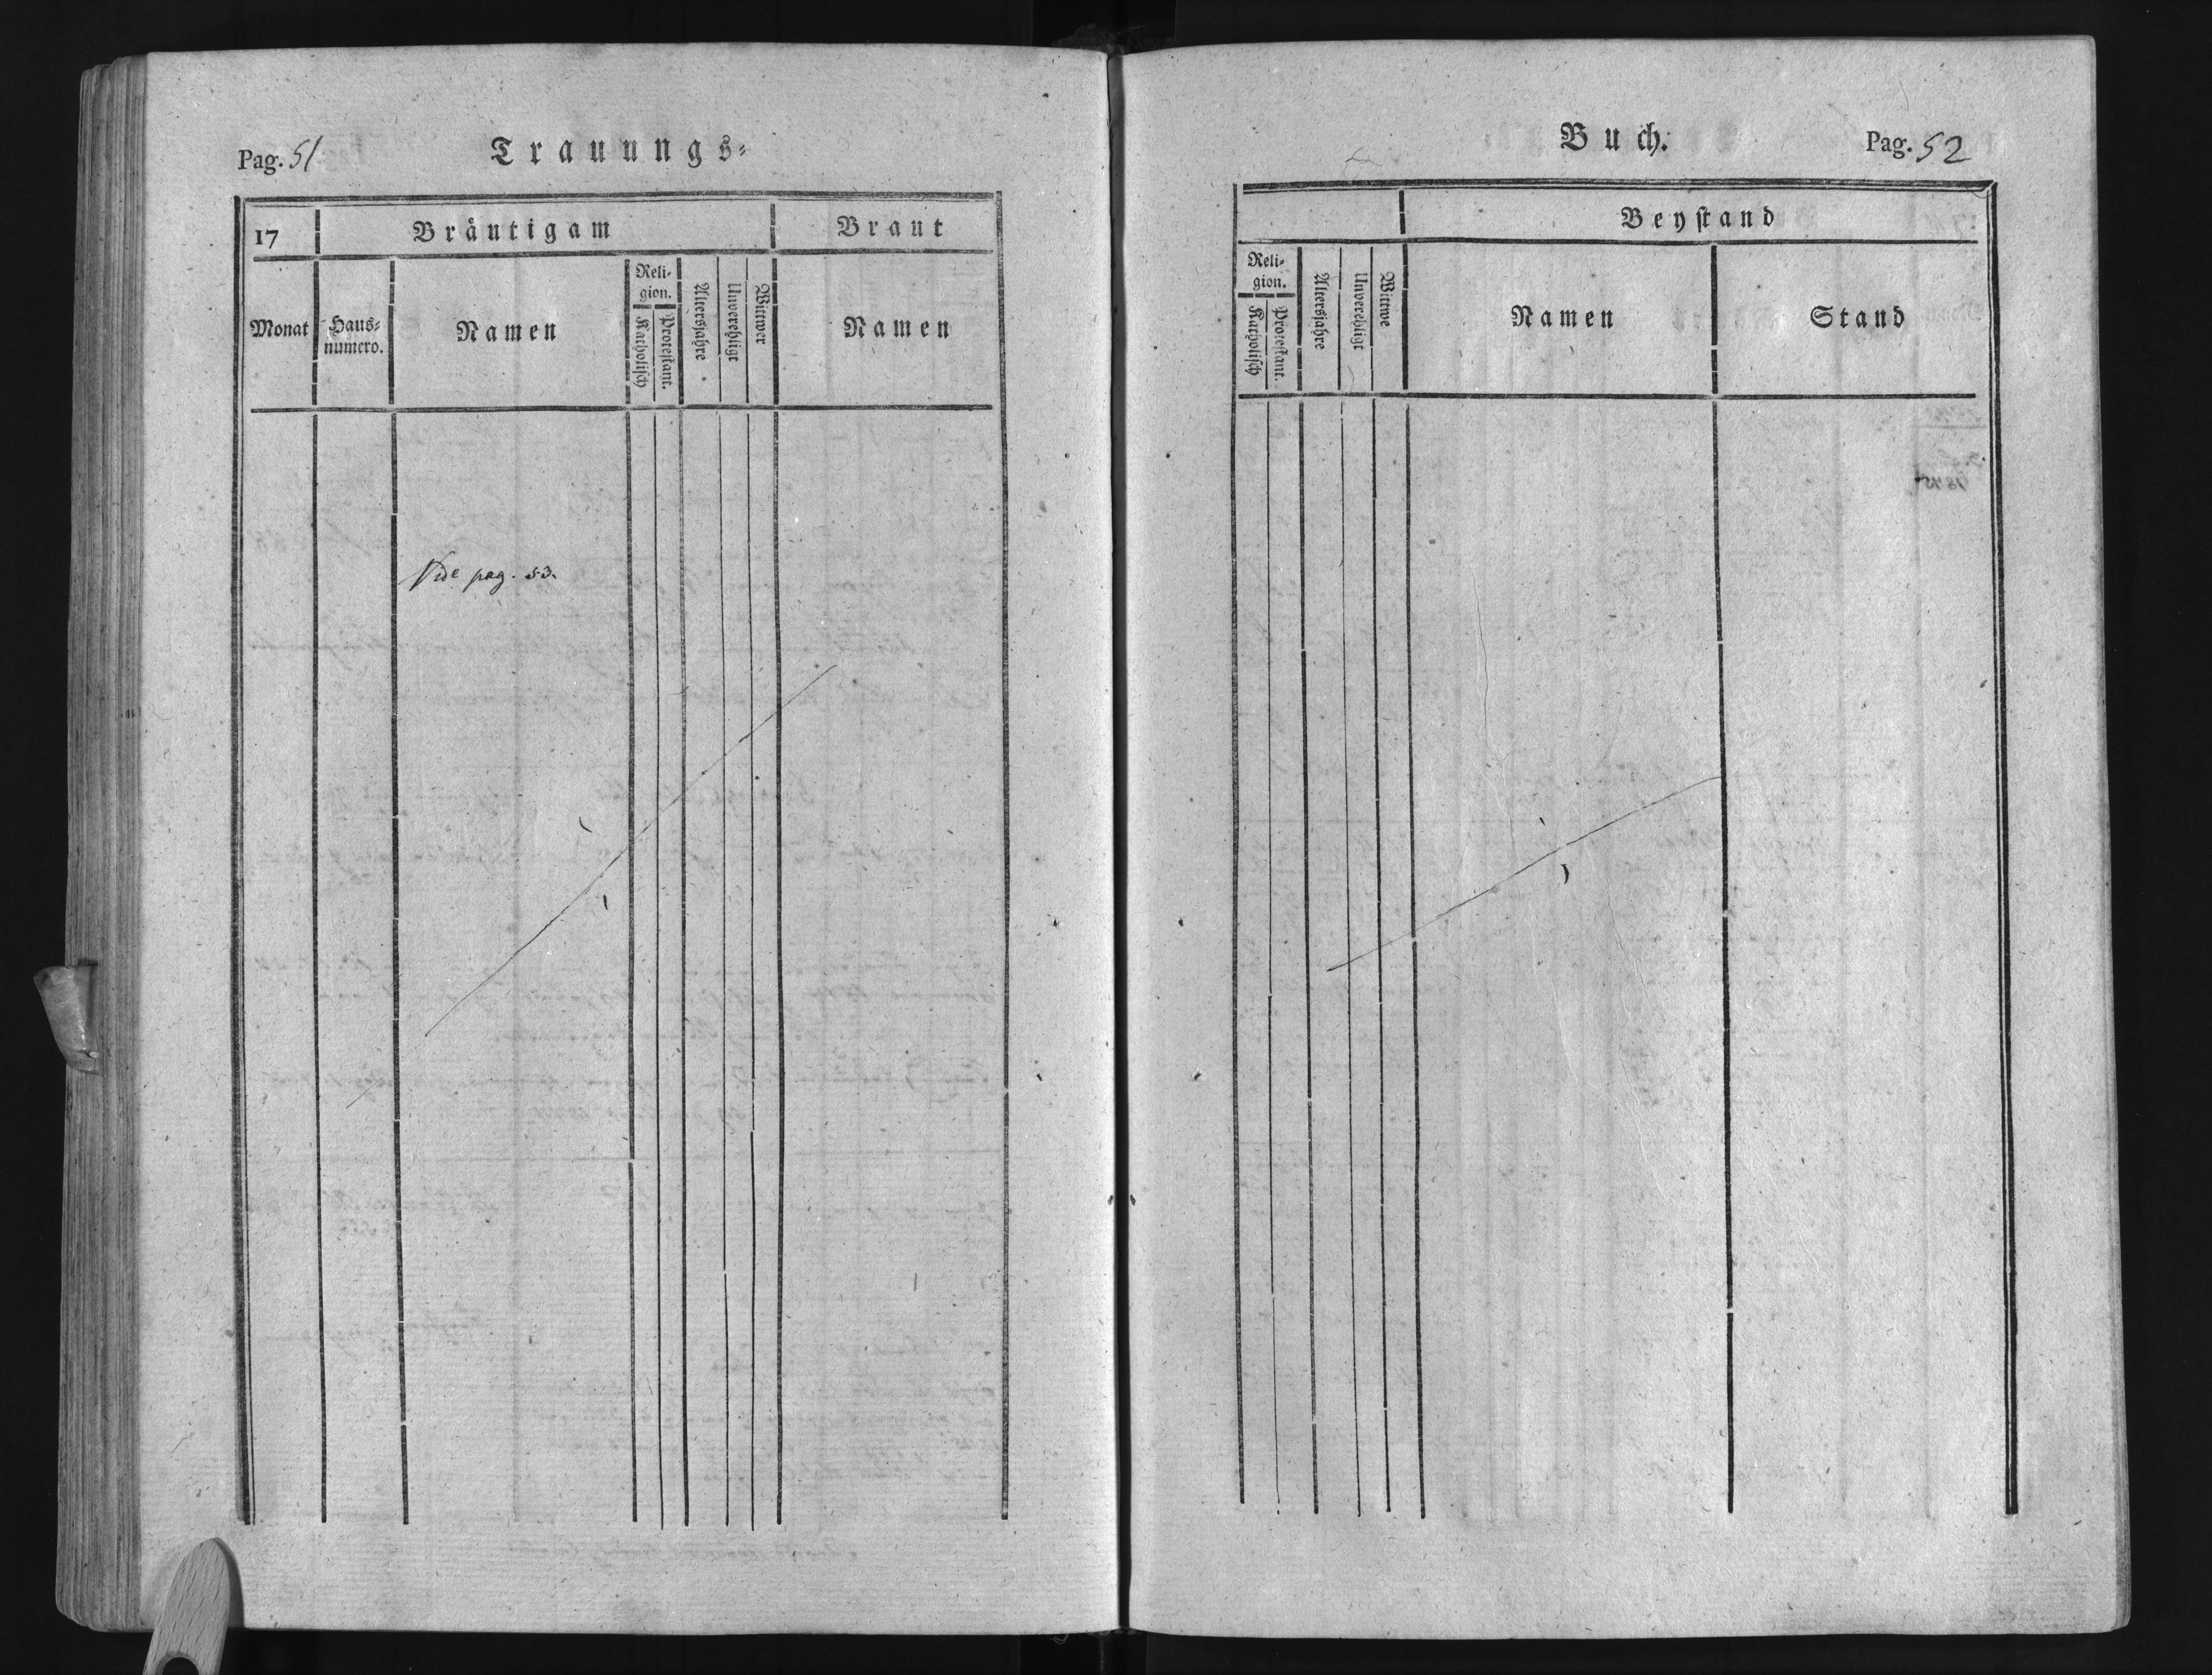 Pag. 51
Trauungs=
17
Bräutigam
Braut
Monat
Haus=
numero.
Namen
Reli=
gion.
Katholisch
Protestant.
Altersjahre
Unverehligt
Wittwer
Namen
Vide pag. 53.
Buch.
Pag. 52
Beystand
Reli=
gion.
Katholisch
Protestant.
Altersjahre
Unverehligt
Wittwe
Namen
Stand